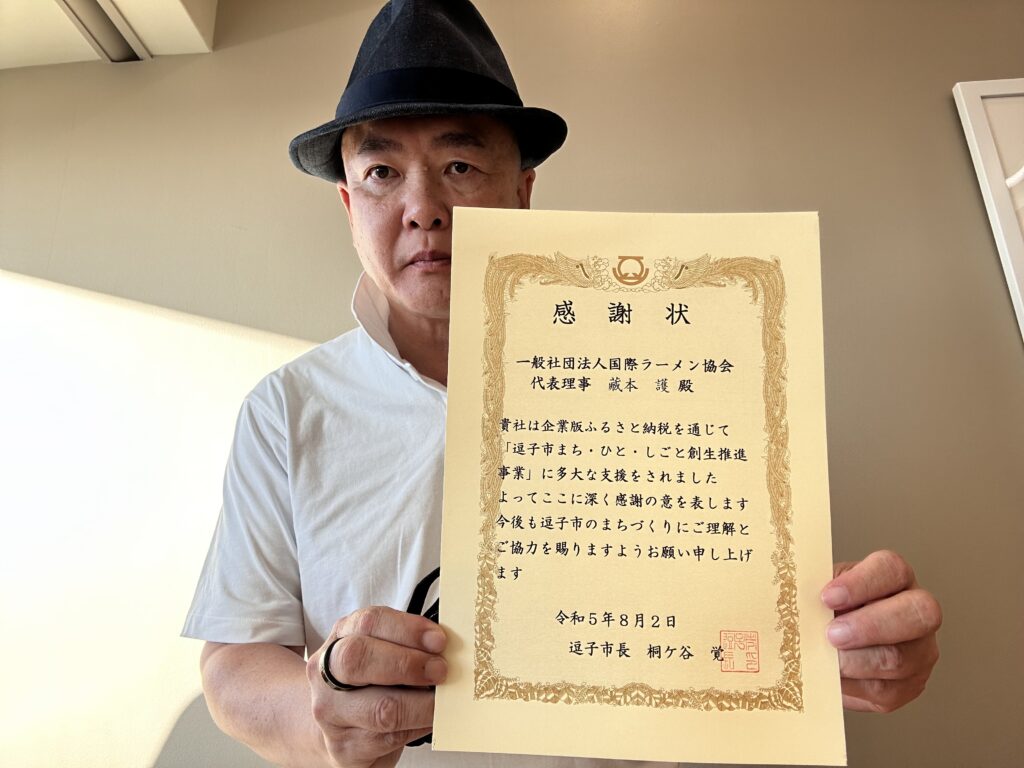 感謝状
一般社団法人国際ラーメン協会
代表理事 蔵本 護 殿
貴社は企業版ふるさと納税を通じて
「逗子市まち・ひと・しごと創生推進
事業」に多大な支援をされました
よってここに深く感謝の意を表します
今後も逗子市のまちづくりにご理解と
ご協力を賜りますようお願い申し上げ
ます
令和5年8月2日
逗子市長 桐ケ谷 覚